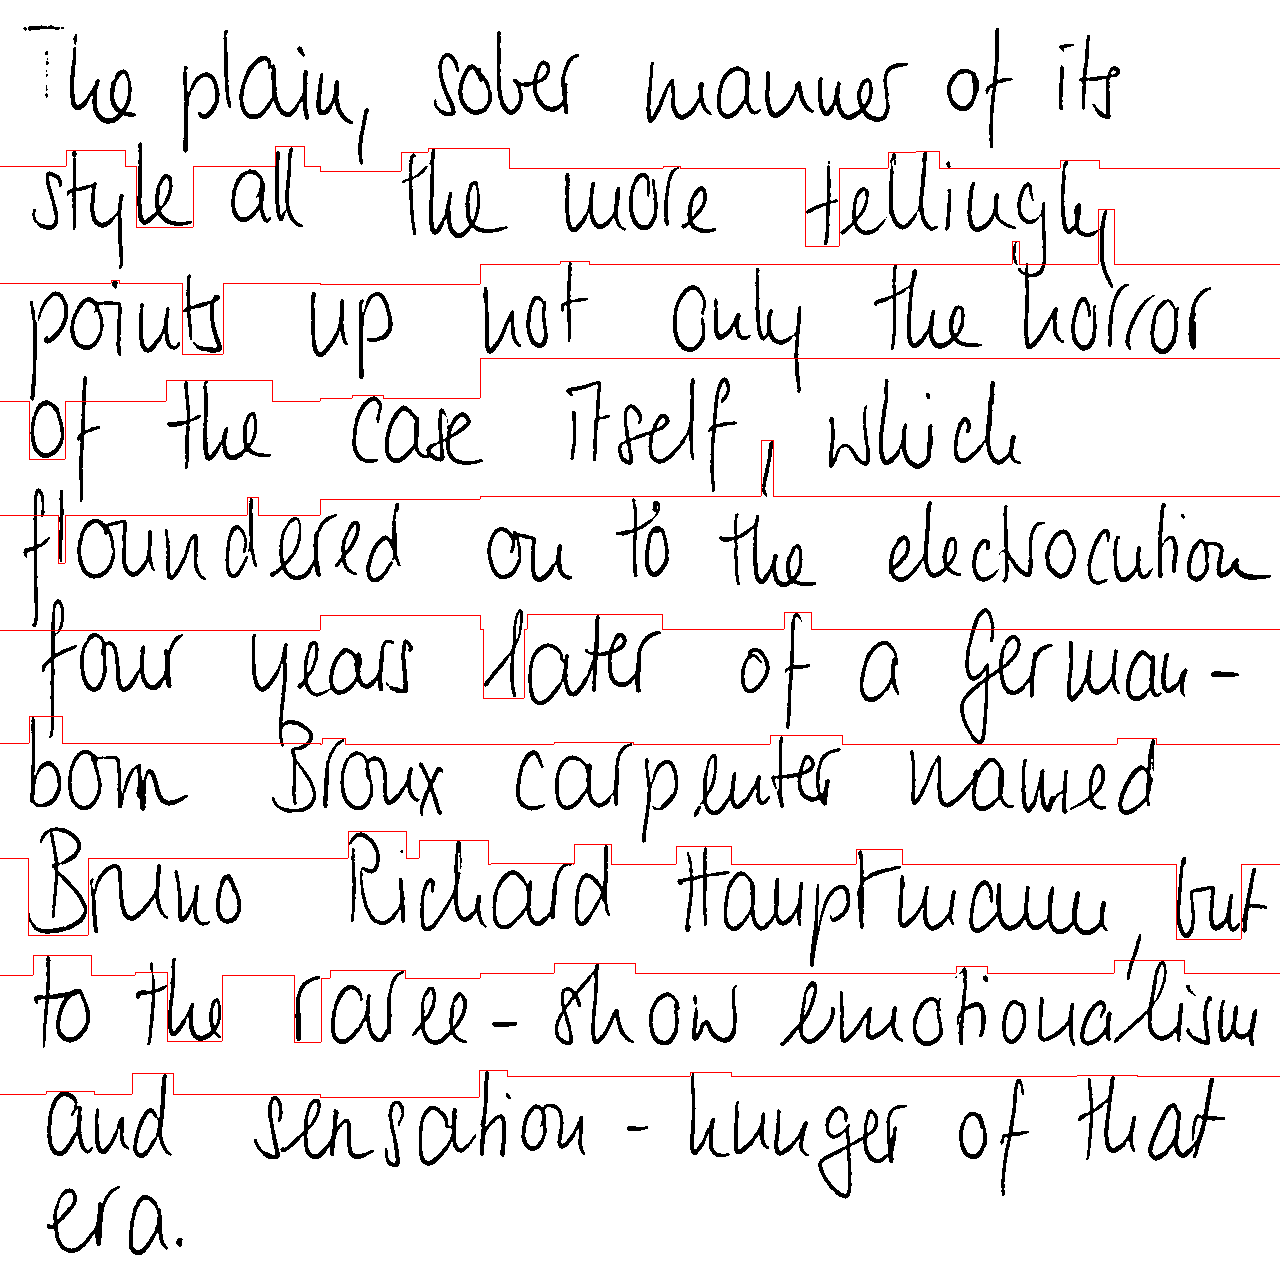 The plain, sober manner of its
style all the more tellingly,
points up not only the horror
of the case itself, which
floundered on to the electrocution
four years later of a German-
born Bronx carpenter named
Bruno Richard Hauptmann, but
to the raree-show emotionalism
and sensation-hunger of that
era.